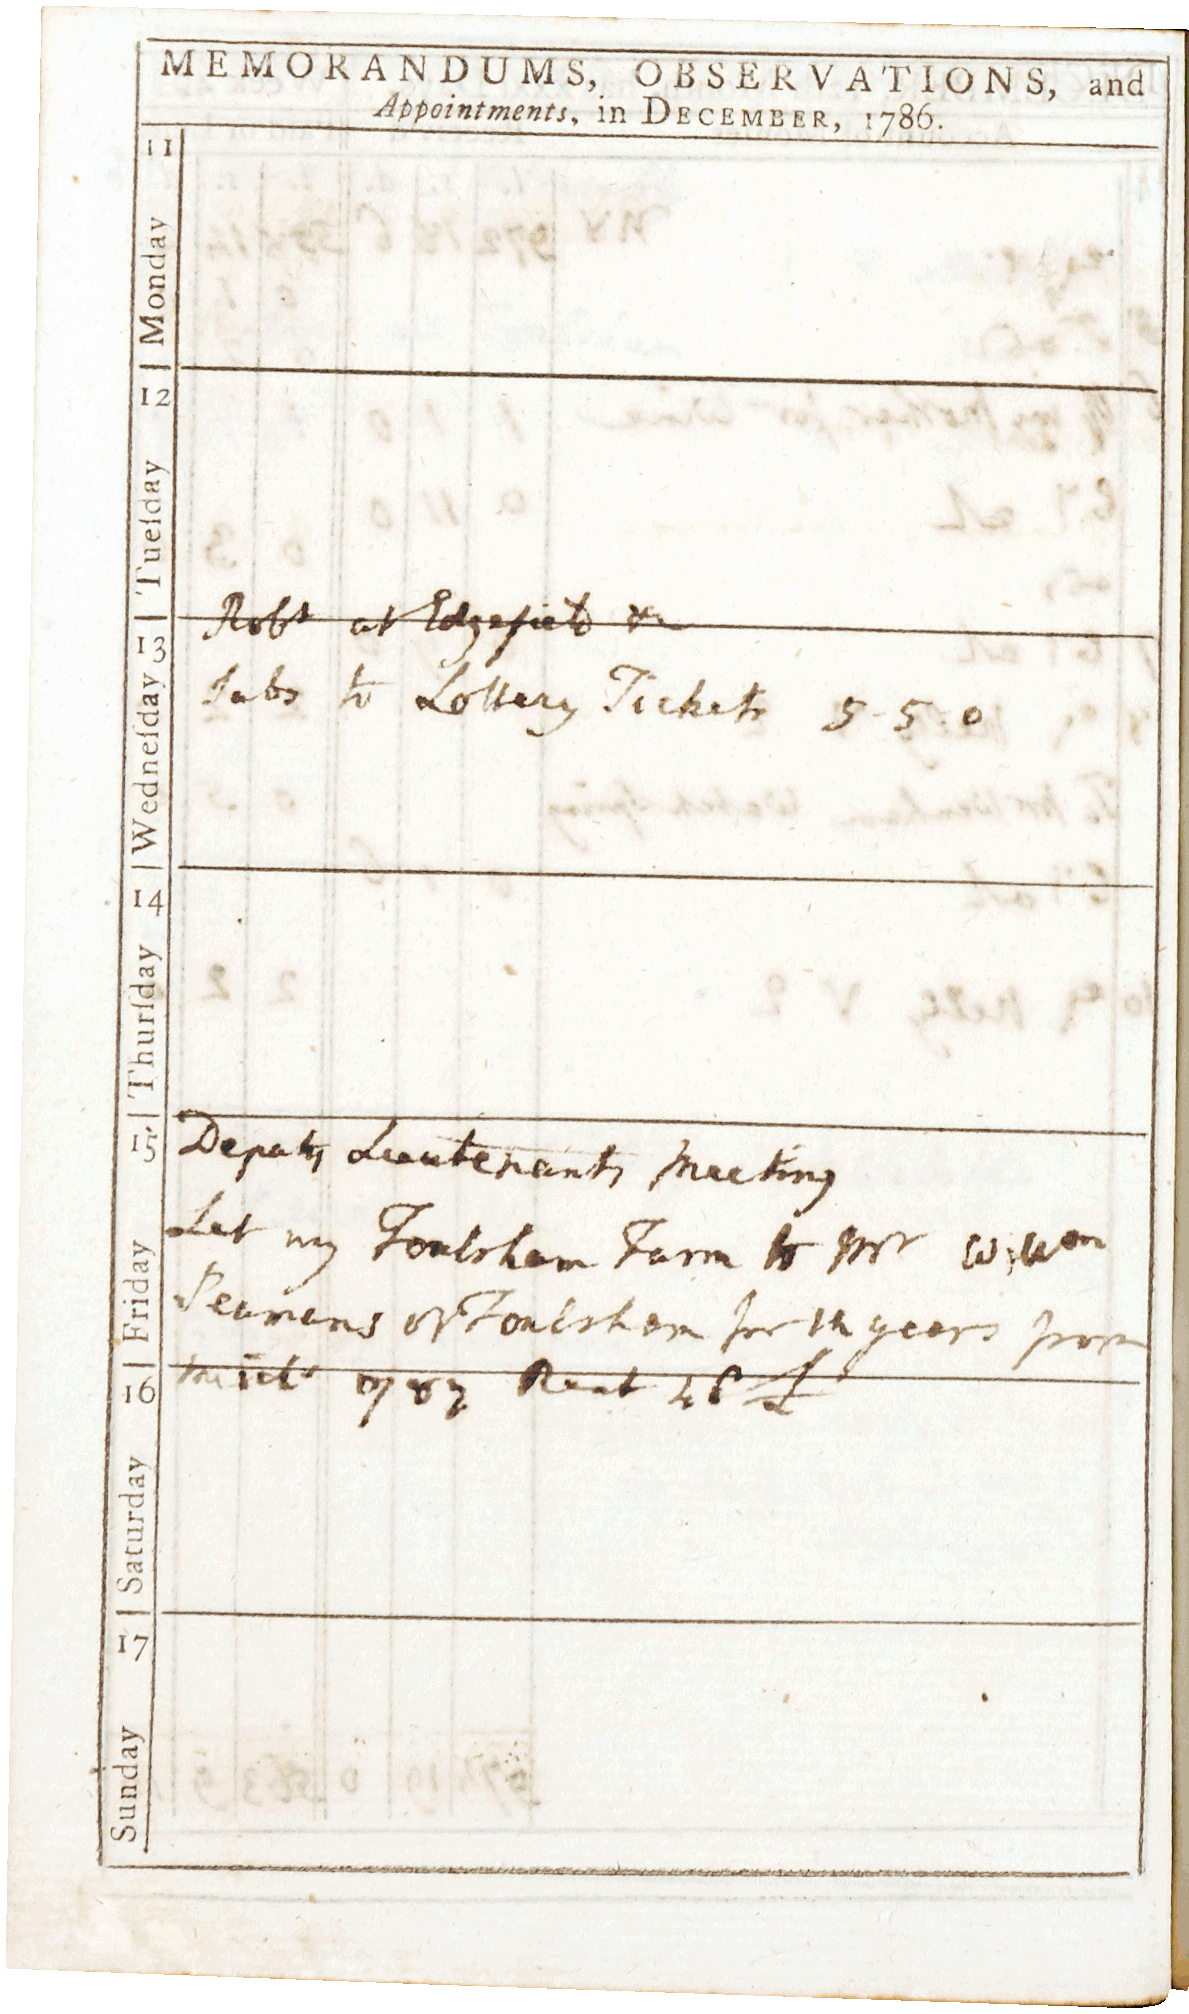 MEMORANDUMS, OBSERVATIONS, and
Appointments, in DECEMBER, 1786.
11
Monday
12
Tueſday
Robt at Edgefield &c
13
Wedneſday
Subs to Lottery Tickets 5-5-0
14
Thurſday
15
Friday
Deputy Lieutenants Meeting
Let my Foulsham Farm to Mr
Seamans of Foulsham for years from
16
Saturday
Michs Rent 48 £
17
Sunday